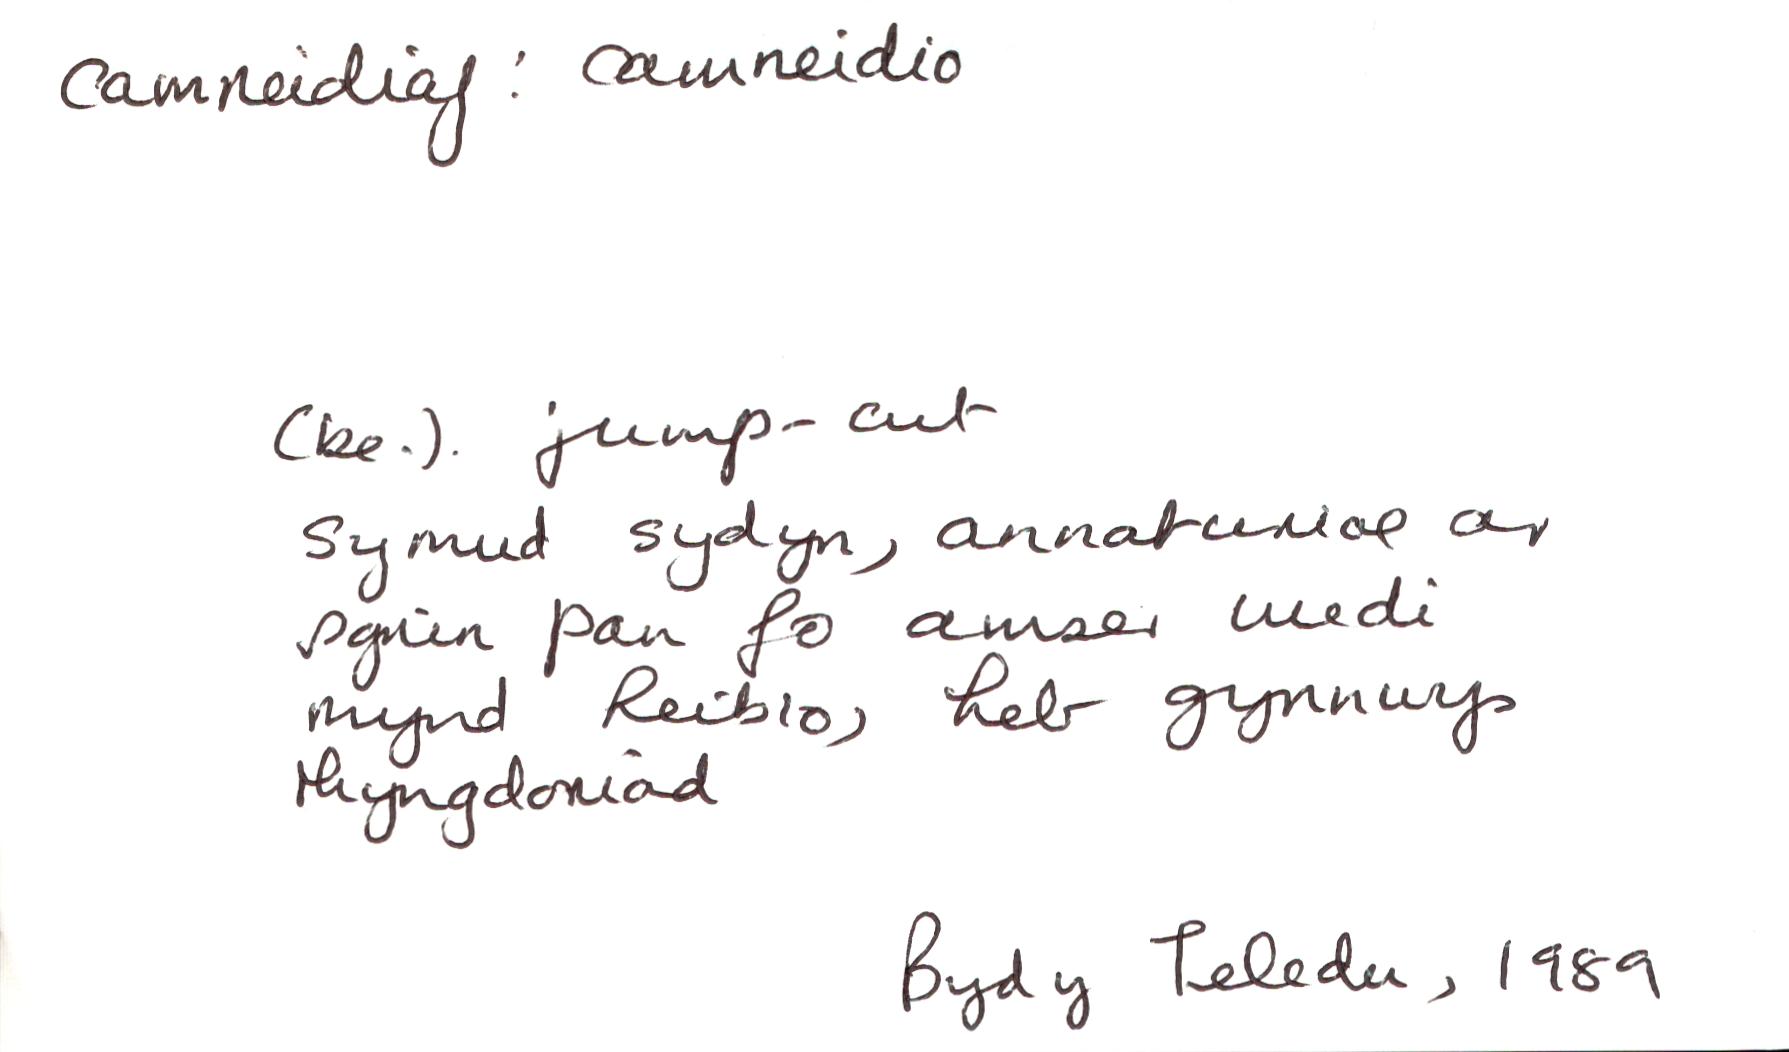 camneidiaf: camneidio
(be.). jump-cut
Symud sydyn, annaturiol ar
sgrin pan fo amser wedi
mynd heibio, heb gynnwys
rhyngdoriad
Byd y Teledu, 1989